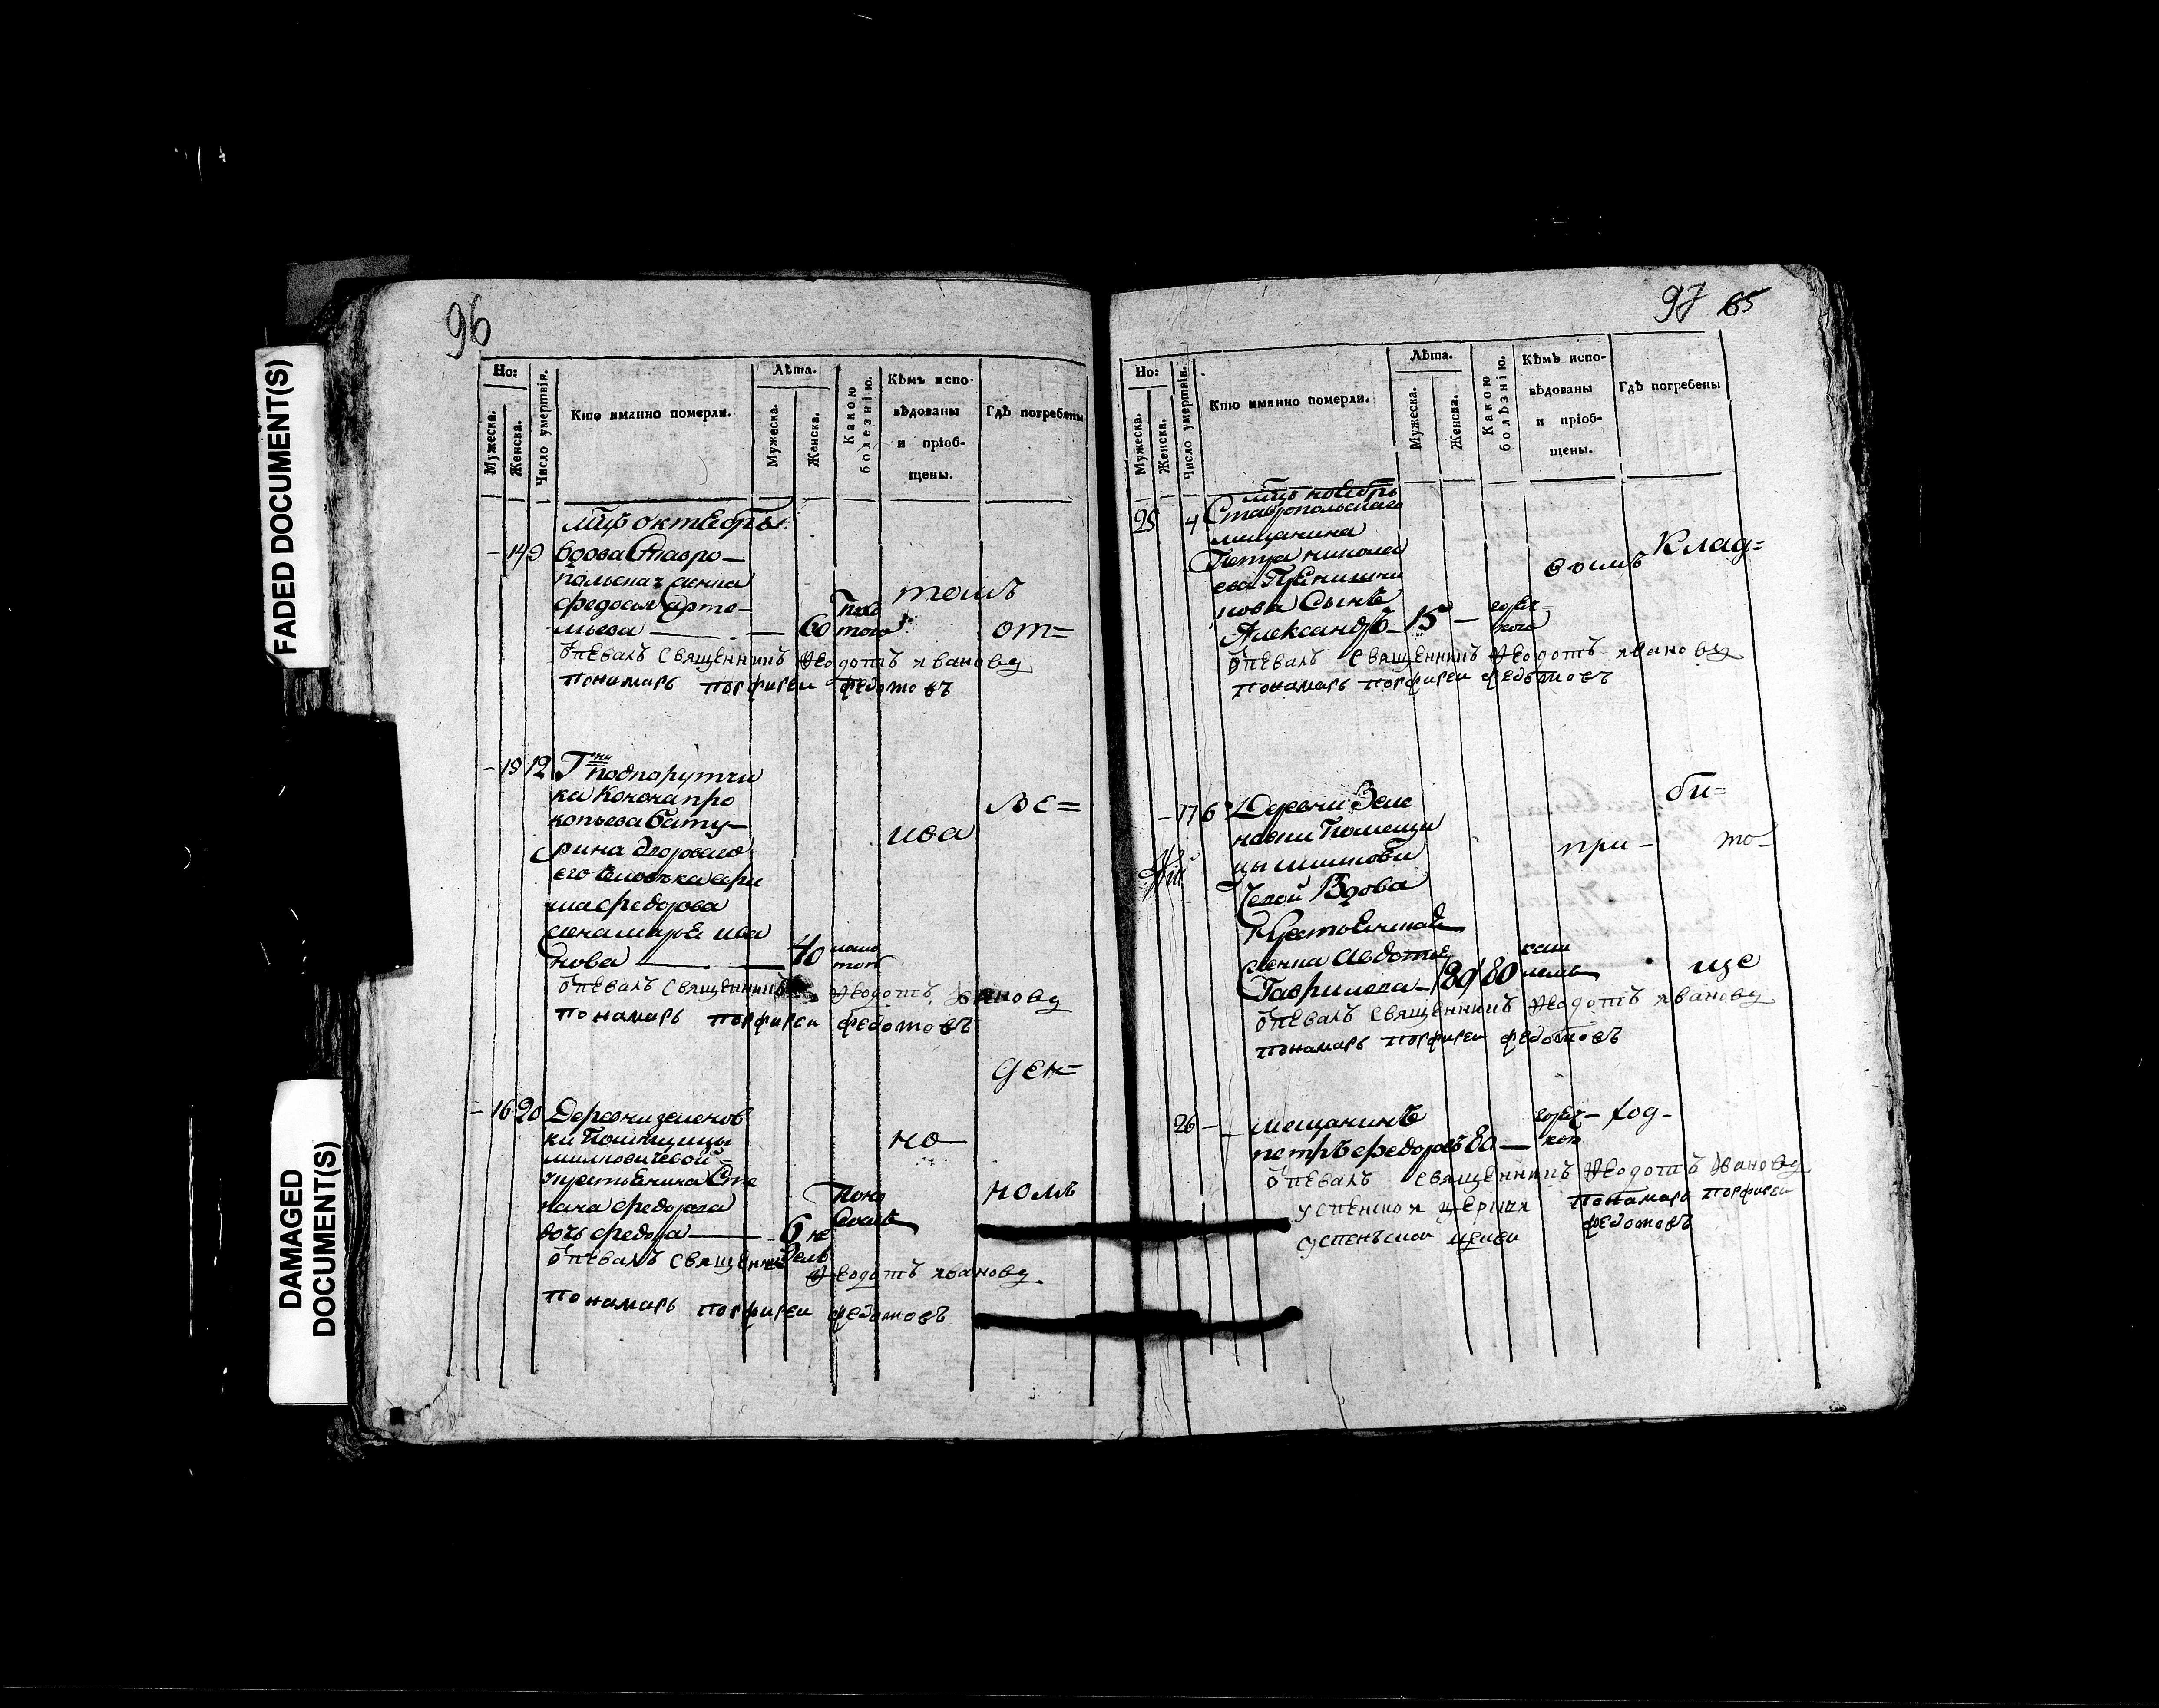 FADED DOCUMENT(S)
DAMAGED
DOCUMENT(S)
96
Но:
Мужеска.
Женска.
Число умертвія.
Кто имянно померли.
Лѣта.
Мужеска.
Женска.
Какою
болезнію.
Кѣмъ испо-
вѣдованы
и пріоб-
щены.
Гдѣ погребены
октебрь
- 14 9 вдова Ставро-
польская
федосья Арте-
мьева — — 60
томъ
от=
опевалъ священникъ Ѳеодотъ ивановъ
пономарь порфирей федотовъ
- 15 12 Гна подпорутчи
ка Конона про
копьева Бату-
рина дворового
его
федорова
жена марья ива
нова — — 40
ива
ве=
опевалъ священникъ Ѳеодотъ ивановъ
пономарь порфирей федотовъ
ден=
- 16 20 Деревни зеленов
ки Помещицы
милковичевой
крестьянина Сте
пана федорова
дочь федора — 6 не
дель
но
номъ
опевалъ священникъ
Ѳеодотъ ивановъ
пономарь порфирей федотовъ
97 65
Но:
Мужеска.
Женска.
Число умертвія.
Кто имянно померли.
Лѣта.
Мужеска.
Женска.
Какою
болѣзнію.
Кѣмъ испо-
вѣдованы
и пріоб-
щены.
Гдѣ погребены
ноебрь
25 4 Ставропольскаго
мищанина
Петра никола
ева
нова Сынъ
Александръ 15 —
Клад=
опевалъ священникъ Ѳеодотъ ивановъ
пономарь порфирей федотовъ
- 17 6 Деревни Зеле
новки Помещи
цы милкови
чевой Вдова
жена Авдотья
Гаврилова 80
при-
би=
то-
ще
опевалъ священникъ Ѳеодотъ ивановъ
пономарь порфирей федотовъ
26 - - мещанинъ
петръ федоровъ 80 —
ход-
опевалъ священникъ Ѳеодотъ ивановъ
пономарь порфирей
федотовъ